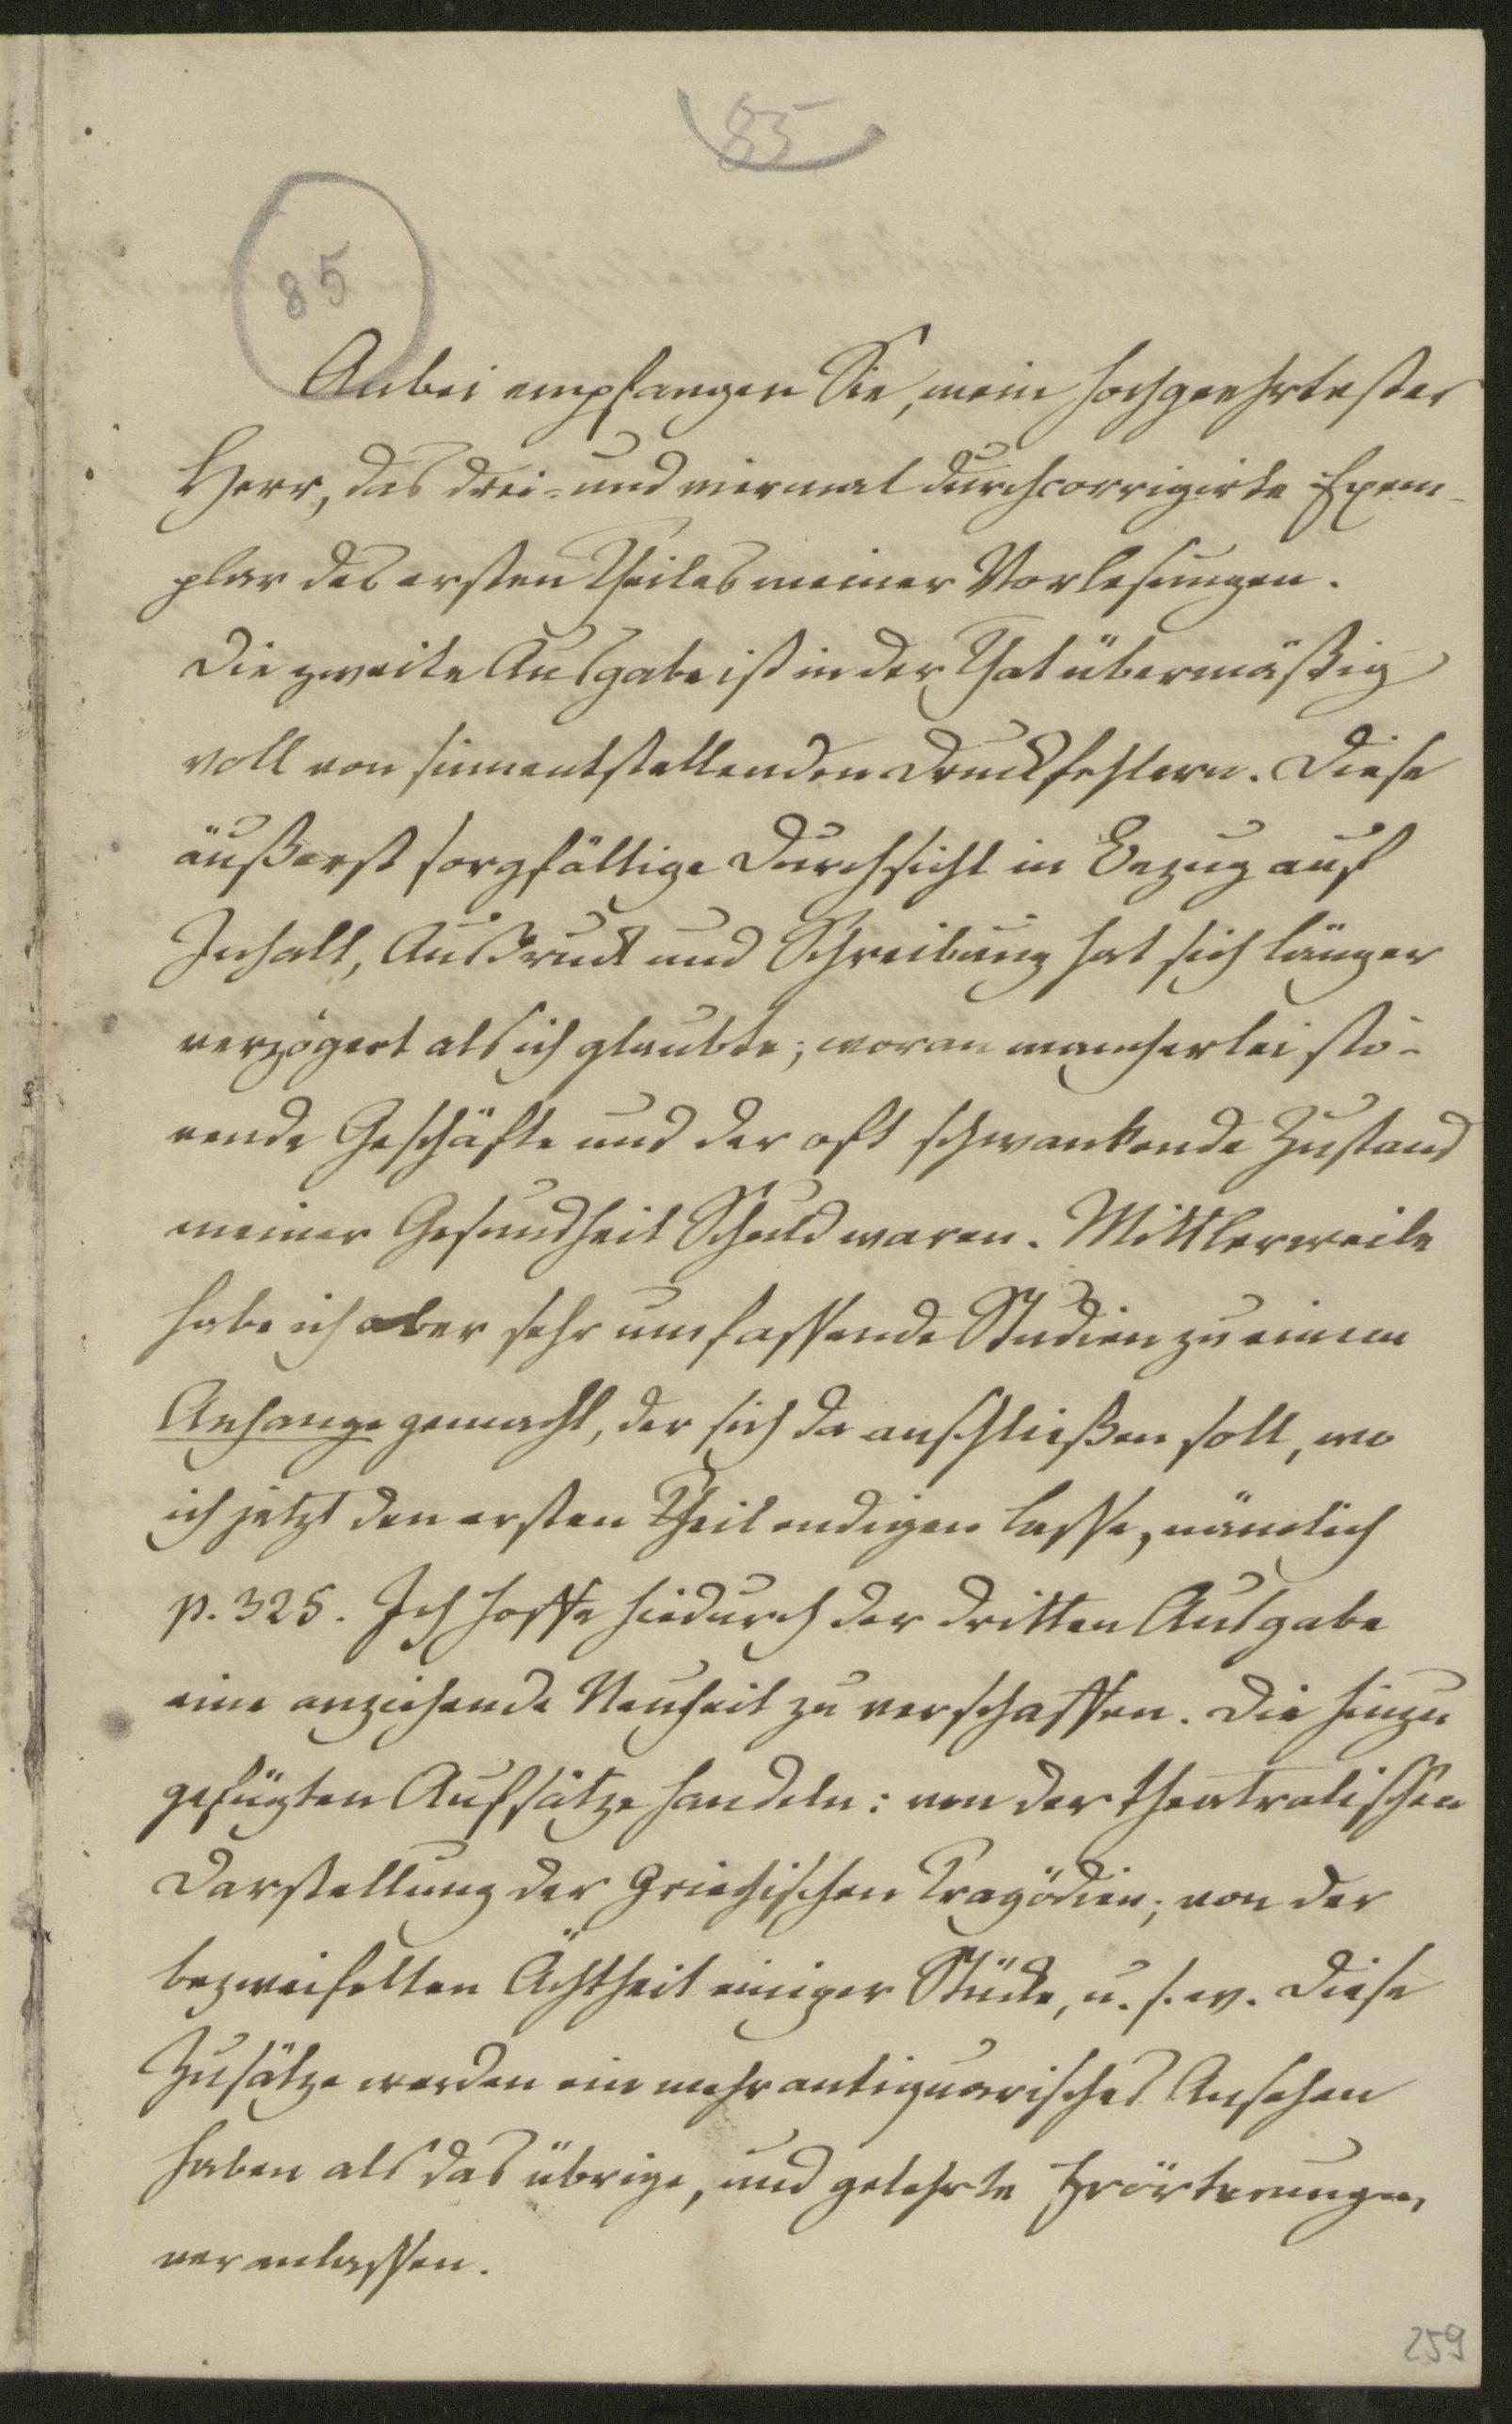 85
85
Anbei empfangen Sie, mein hochgeehrtester
Herr, das drei- und viermal durchcorrigirte Exem-
plar des ersten Theiles meiner Vorlesungen.
Die zweite Ausgabe ist in der That übermäßig
voll von sinnentstellenden Druckfehlern. Diese
äußerst sorgfältige Durchsicht in Bezug auf
Inhalt, Ausdruck und Schreibung hat sich länger
verzögert als ich glaubte; woran mancherlei stö-
rende Geschäfte und der oft schwankende Zustand
meiner Gesundheit Schuld waren. Mittlerweile
habe ich aber sehr umfassende Studien zu einem
Anhange gemacht, der sich da anschließen soll, wo
ich jetzt den ersten Theil endigen lasse, nämlich
p. 325. Ich hoffe hiedurch der dritten Ausgabe
eine anziehende Neuheit zu verschaffen. Die hinzu
gefügten Aufsätze handeln: von der theatralischen
Darstellung der Griechischen Tragödien; von der
bezweifelten Ächtheit einiger Stücke, u. s. w. Diese
Zusätze werden ein mehr antiquarisches Ansehen
haben als das übrige, und gelehrte Erörterungen
veranlassen.
259